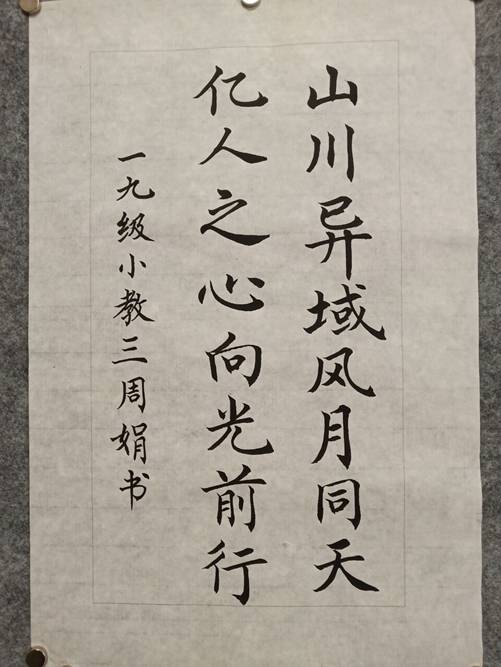 山川异域风月同天
亿人之心向光前行
一九级小教三周娟书